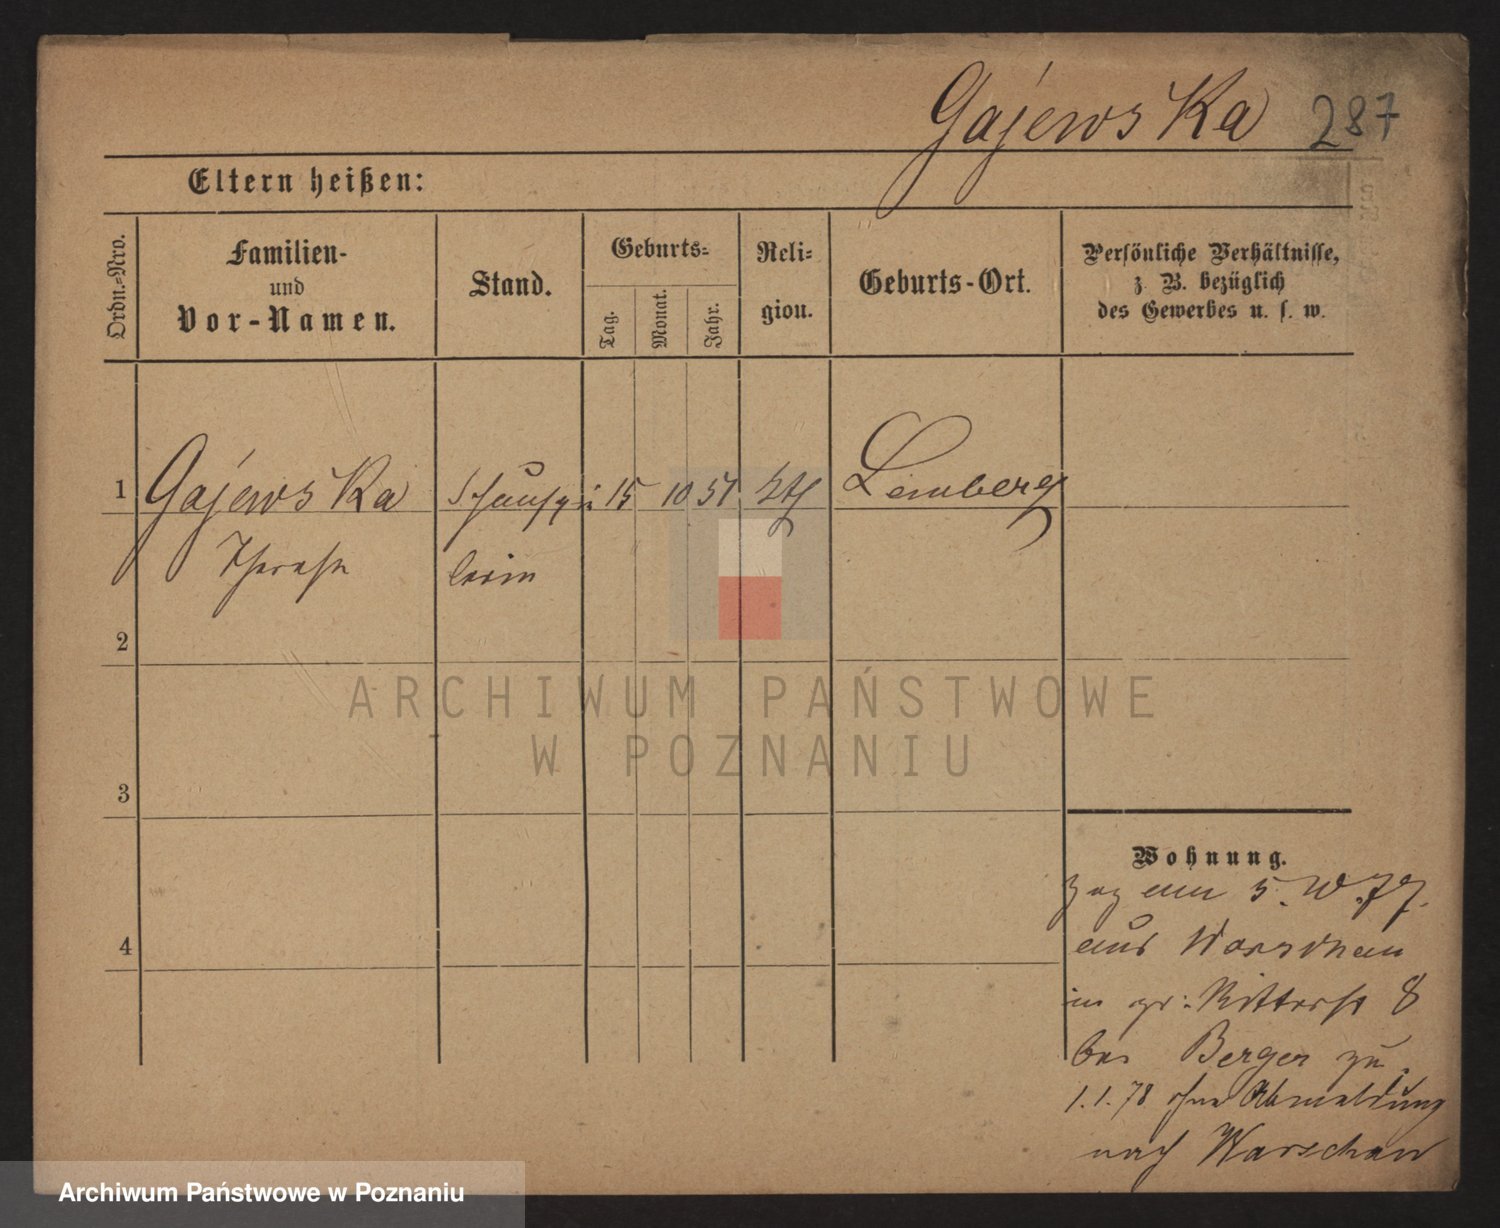 Gajewska 287
Eltern heißen:
Ordn.-Nro.
Familien-
und
Vor-Namen.
Stand.
Geburts-
Tag.
Monat.
Jahr.
Reli-
gion.
Geburts-Ort.
Persönliche Verhältnisse,
z. B. bezüglich
des Gewerbes u. s. w.
1 Gajewska Schauspie 15 10 51 kth Lemberg
Therese lerin
2
3
4
ARCHIWUM PAŃSTWOWE
W POZNANIU
Wohnung.
zog am 5.
aus Warschau
in gr: Ritterst 8
bei Berger zu.
1.1.78 ohne Abmeldung
nach Warschau
Archiwum Państwowe w Poznaniu